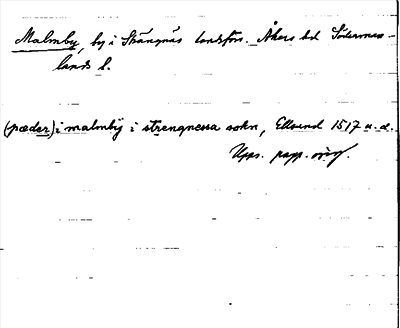 Malmby, by i Strängnäs landsförs. Åkers hd Söderman-
lands l.
(pæder) i malmbÿ i strengnessa sokn, Ellsend 1517 u. d.
Upps. papp. orig.